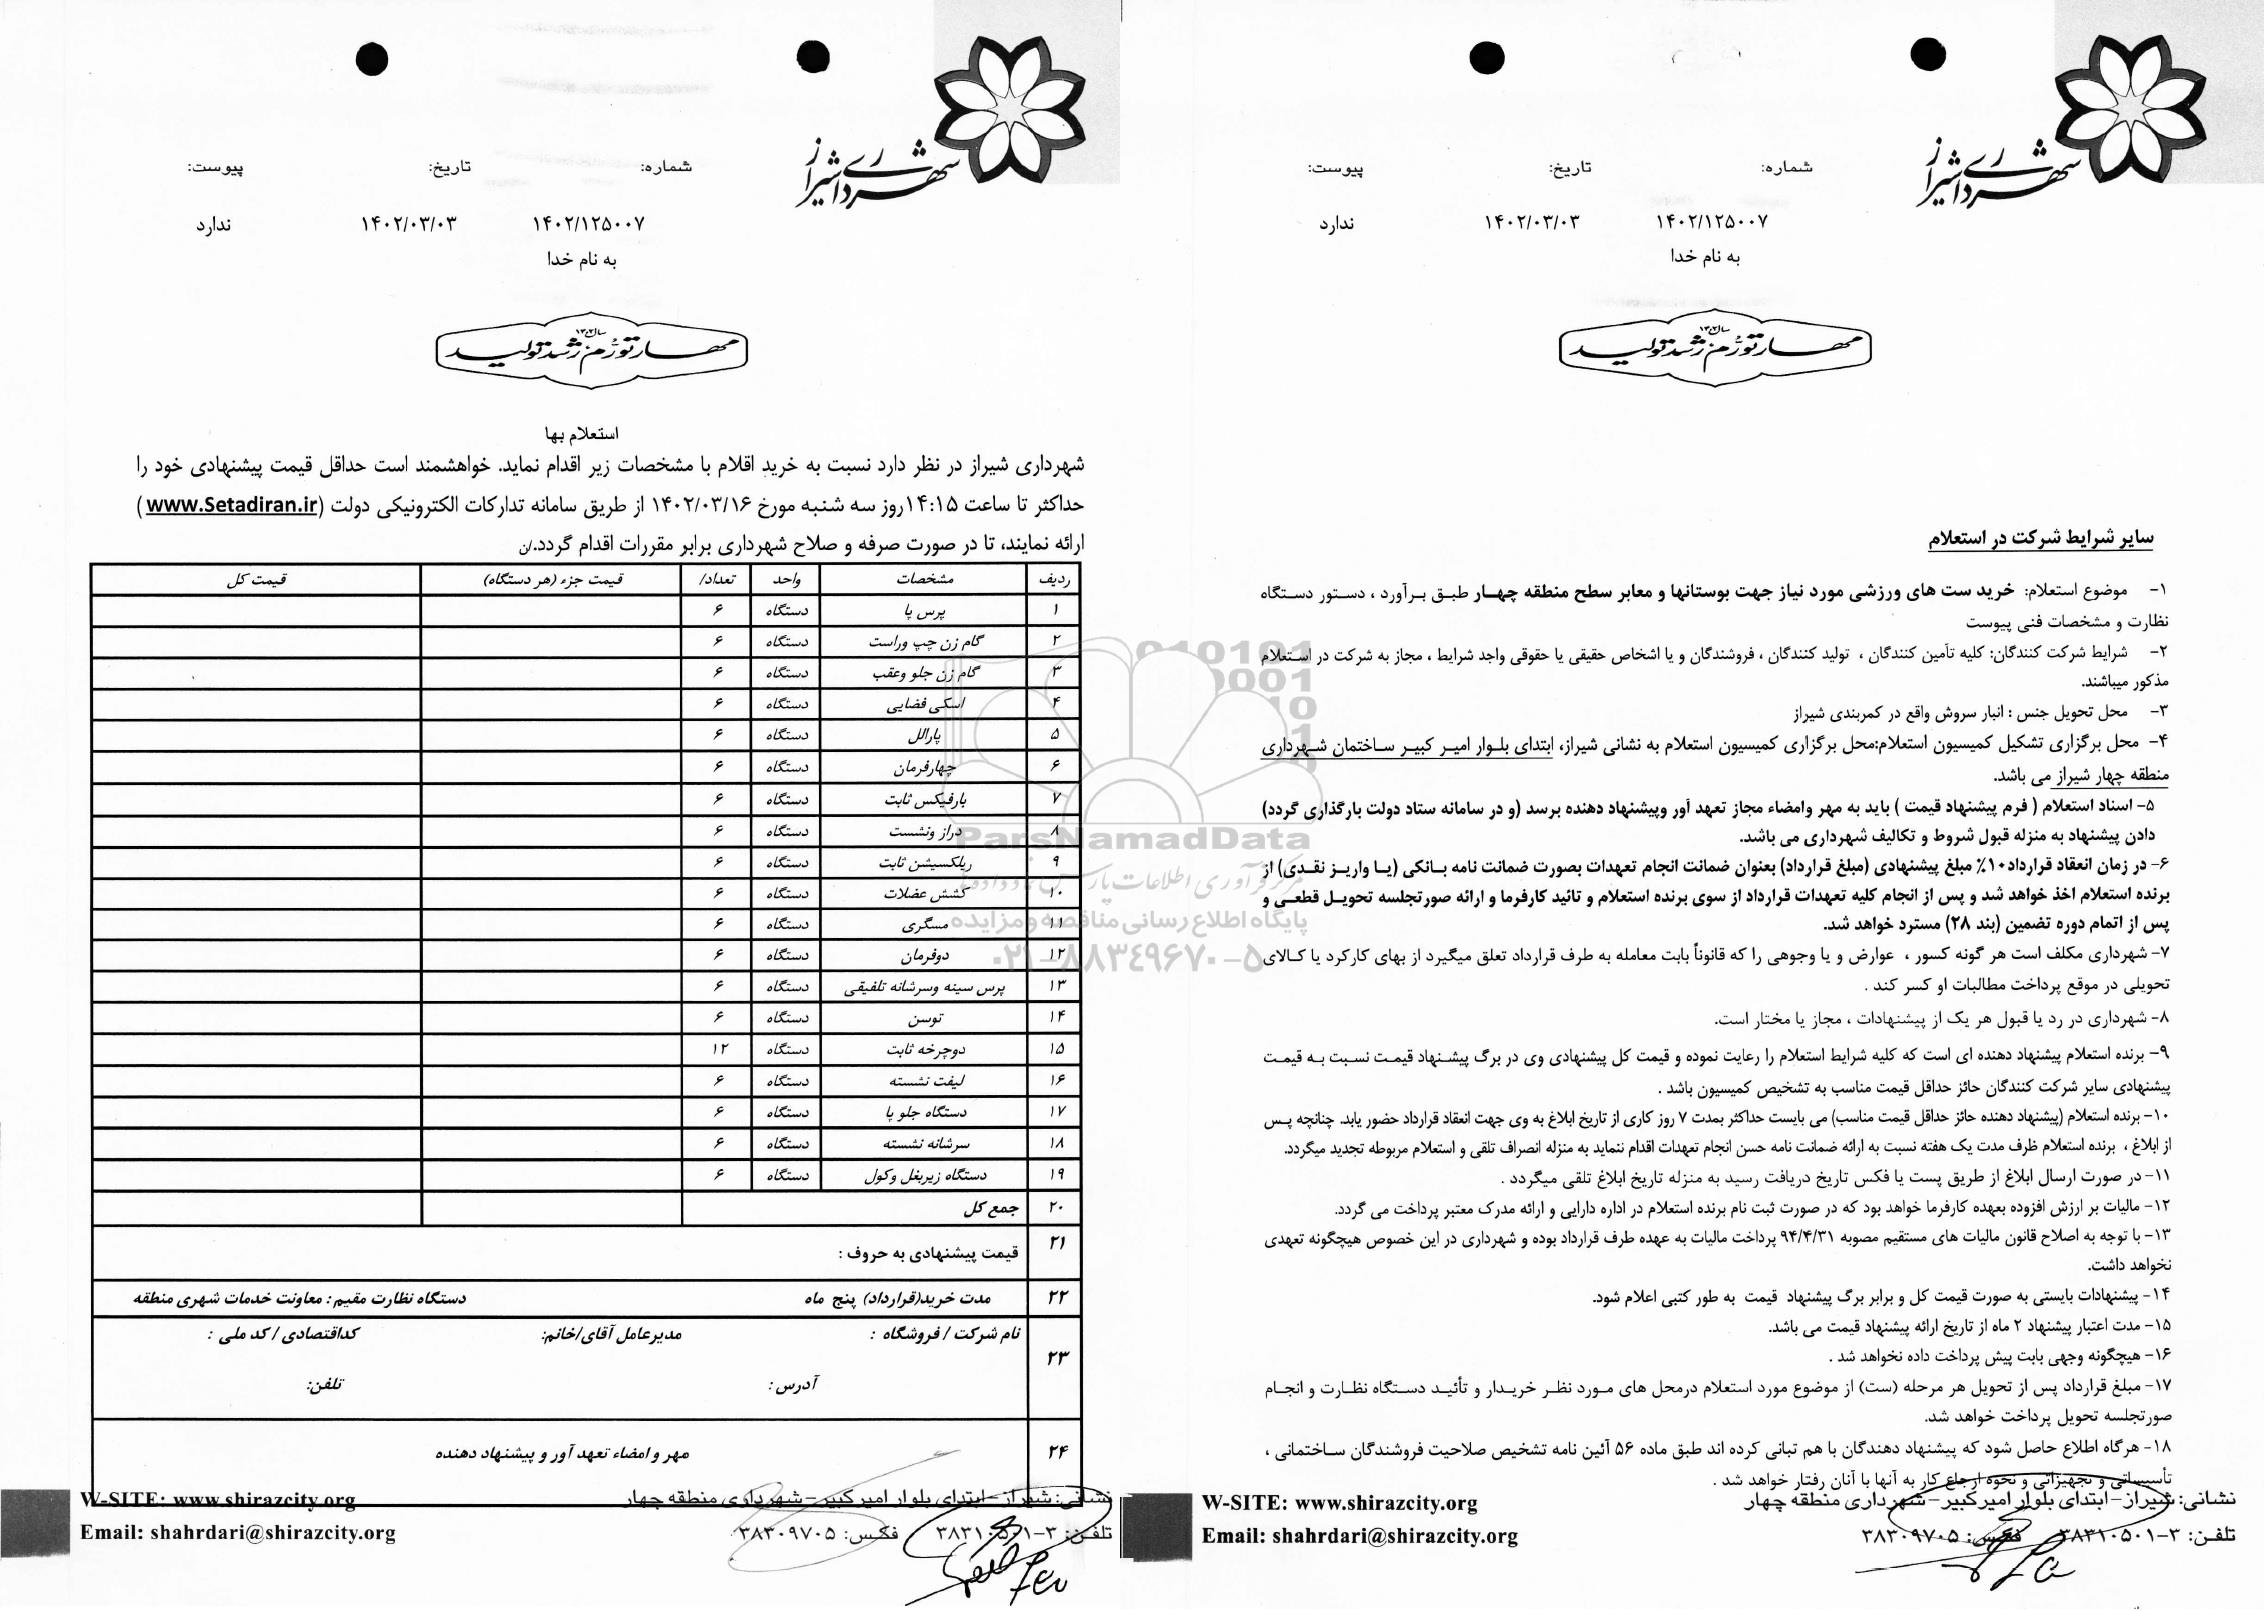 شهرداری شیراز
شماره: تاریخ: پیوست:
۱۴۰۲/۱۲۵۰۰۷ ۱۴۰۲/۰۳/۰۳ ندارد
به نام خدا
سال ۱۴۰۲
مهار تورم رشد تولید
استعلام بها
شهرداری شیراز در نظر دارد نسبت به خرید اقلام با مشخصات زیر اقدام نماید. خواهشمند است حداقل قیمت پیشنهادی خود را
حداکثر تا ساعت ۱۴:۱۵روز سه شنبه مورخ ۱۴۰۲/۰۳/۱۶ از طریق سامانه تدارکات الکترونیکی دولت (www.Setadiran.ir)
ارائه نمایند، تا در صورت صرفه و صلاح شهرداری برابر مقررات اقدام گردد./ن
ردیف مشخصات واحد تعداد/ قیمت جزء (هر دستگاه) قیمت کل
۱ پرس پا دستگاه ۶
۲ گام زن چپ وراست دستگاه ۶
۳ گام زن جلو وعقب دستگاه ۶
۴ اسکی فضایی دستگاه ۶
۵ پارالل دستگاه ۶
۶ چهارفرمان دستگاه ۶
۷ بارفیکس ثابت دستگاه ۶
۸ دراز ونشست دستگاه ۶
۹ ریلکسیشن ثابت دستگاه ۶
۱۰ کشش عضلات دستگاه ۶
۱۱ مسگری دستگاه ۶
۱۲ دوفرمان دستگاه ۶
۱۳ پرس سینه وسرشانه تلفیقی دستگاه ۶
۱۴ توسن دستگاه ۶
۱۵ دوچرخه ثابت دستگاه ۱۲
۱۶ لیفت نشسته دستگاه ۶
۱۷ دستگاه جلو پا دستگاه ۶
۱۸ سرشانه نشسته دستگاه ۶
۱۹ دستگاه زیربغل وکول دستگاه ۶
۲۰ جمع کل
۲۱ قیمت پیشنهادی به حروف :
۲۲ مدت خرید(قرارداد) پنج ماه دستگاه نظارت مقیم : معاونت خدمات شهری منطقه
۲۳ نام شرکت / فروشگاه : مدیرعامل آقای/خانم: کداقتصادی / کد ملی :
آدرس : تلفن:
۲۴ مهر و امضاء تعهد آور و پیشنهاد دهنده
نشانی: شیراز-ابتدای بلوار امیرکبیر-شهرداری منطقه چهار W-SITE: www.shirazcity.org
تلفن: ۳-۳۸۳۱۰۵۰۱ فکس: ۳۸۳۰۹۷۰۵ Email: shahrdari@shirazcity.org
شهرداری شیراز
شماره: تاریخ: پیوست:
۱۴۰۲/۱۲۵۰۰۷ ۱۴۰۲/۰۳/۰۳ ندارد
به نام خدا
سال ۱۴۰۲
مهار تورم رشد تولید
سایر شرایط شرکت در استعلام
۱- موضوع استعلام: خرید ست های ورزشی مورد نیاز جهت بوستانها و معابر سطح منطقه چهار طبق برآورد ، دستور دستگاه
نظارت و مشخصات فنی پیوست
۲- شرایط شرکت کنندگان: کلیه تأمین کنندگان ، تولید کنندگان ، فروشندگان و یا اشخاص حقیقی یا حقوقی واجد شرایط ، مجاز به شرکت در استعلام
مذکور میباشند.
۳- محل تحویل جنس : انبار سروش واقع در کمربندی شیراز
۴- محل برگزاری تشکیل کمیسیون استعلام:محل برگزاری کمیسیون استعلام به نشانی شیراز، ابتدای بلوار امیر کبیر ساختمان شهرداری
منطقه چهار شیراز می باشد.
۵- اسناد استعلام ( فرم پیشنهاد قیمت ) باید به مهر وامضاء مجاز تعهد آور وپیشنهاد دهنده برسد (و در سامانه ستاد دولت بارگذاری گردد)
دادن پیشنهاد به منزله قبول شروط و تکالیف شهرداری می باشد.
۶- در زمان انعقاد قرارداد۱۰٪ مبلغ پیشنهادی (مبلغ قرارداد) بعنوان ضمانت انجام تعهدات بصورت ضمانت نامه بانکی (یا واریز نقدی) از
برنده استعلام اخذ خواهد شد و پس از انجام کلیه تعهدات قرارداد از سوی برنده استعلام و تائید کارفرما و ارائه صورتجلسه تحویل قطعی و
پس از اتمام دوره تضمین (بند ۲۸) مسترد خواهد شد.
۷- شهرداری مکلف است هر گونه کسور ، عوارض و یا وجوهی را که قانوناً بابت معامله به طرف قرارداد تعلق میگیرد از بهای کارکرد یا کالای
تحویلی در موقع پرداخت مطالبات او کسر کند .
۸- شهرداری در رد یا قبول هر یک از پیشنهادات ، مجاز یا مختار است.
۹- برنده استعلام پیشنهاد دهنده ای است که کلیه شرایط استعلام را رعایت نموده و قیمت کل پیشنهادی وی در برگ پیشنهاد قیمت نسبت به قیمت
پیشنهادی سایر شرکت کنندگان حائز حداقل قیمت مناسب به تشخیص کمیسیون باشد .
۱۰- برنده استعلام (پیشنهاد دهنده حائز حداقل قیمت مناسب) می بایست حداکثر بمدت ۷ روز کاری از تاریخ ابلاغ به وی جهت انعقاد قرارداد حضور یابد. چنانچه پس
از ابلاغ ، برنده استعلام ظرف مدت یک هفته نسبت به ارائه ضمانت نامه حسن انجام تعهدات اقدام ننماید به منزله انصراف تلقی و استعلام مربوطه تجدید میگردد.
۱۱- در صورت ارسال ابلاغ از طریق پست یا فکس تاریخ دریافت رسید به منزله تاریخ ابلاغ تلقی میگردد .
۱۲- مالیات بر ارزش افزوده بعهده کارفرما خواهد بود که در صورت ثبت نام برنده استعلام در اداره دارایی و ارائه مدرک معتبر پرداخت می گردد.
۱۳- با توجه به اصلاح قانون مالیات های مستقیم مصوبه ۹۴/۴/۳۱ پرداخت مالیات به عهده طرف قرارداد بوده و شهرداری در این خصوص هیچگونه تعهدی
نخواهد داشت.
۱۴- پیشنهادات بایستی به صورت قیمت کل و برابر برگ پیشنهاد قیمت به طور کتبی اعلام شود.
۱۵- مدت اعتبار پیشنهاد ۲ ماه از تاریخ ارائه پیشنهاد قیمت می باشد.
۱۶- هیچگونه وجهی بابت پیش پرداخت داده نخواهد شد .
۱۷- مبلغ قرارداد پس از تحویل هر مرحله (ست) از موضوع مورد استعلام درمحل های مورد نظر خریدار و تأئید دستگاه نظارت و انجام
صورتجلسه تحویل پرداخت خواهد شد.
۱۸- هرگاه اطلاع حاصل شود که پیشنهاد دهندگان با هم تبانی کرده اند طبق ماده ۵۶ آئین نامه تشخیص صلاحیت فروشندگان ساختمانی ،
تأسیساتی و تجهیزاتی و نحوه ارجاع کار به آنها با آنان رفتار خواهد شد .
نشانی: شیراز-ابتدای بلوار امیرکبیر-شهرداری منطقه چهار W-SITE: www.shirazcity.org
تلفن: ۳-۳۸۳۱۰۵۰۱ فکس: ۳۸۳۰۹۷۰۵ Email: shahrdari@shirazcity.org
ParsNamadData
پایگاه اطلاع رسانی مناقصه ومزایده
۰۲۱-۸۸۳۴۹۶۷۰-۵